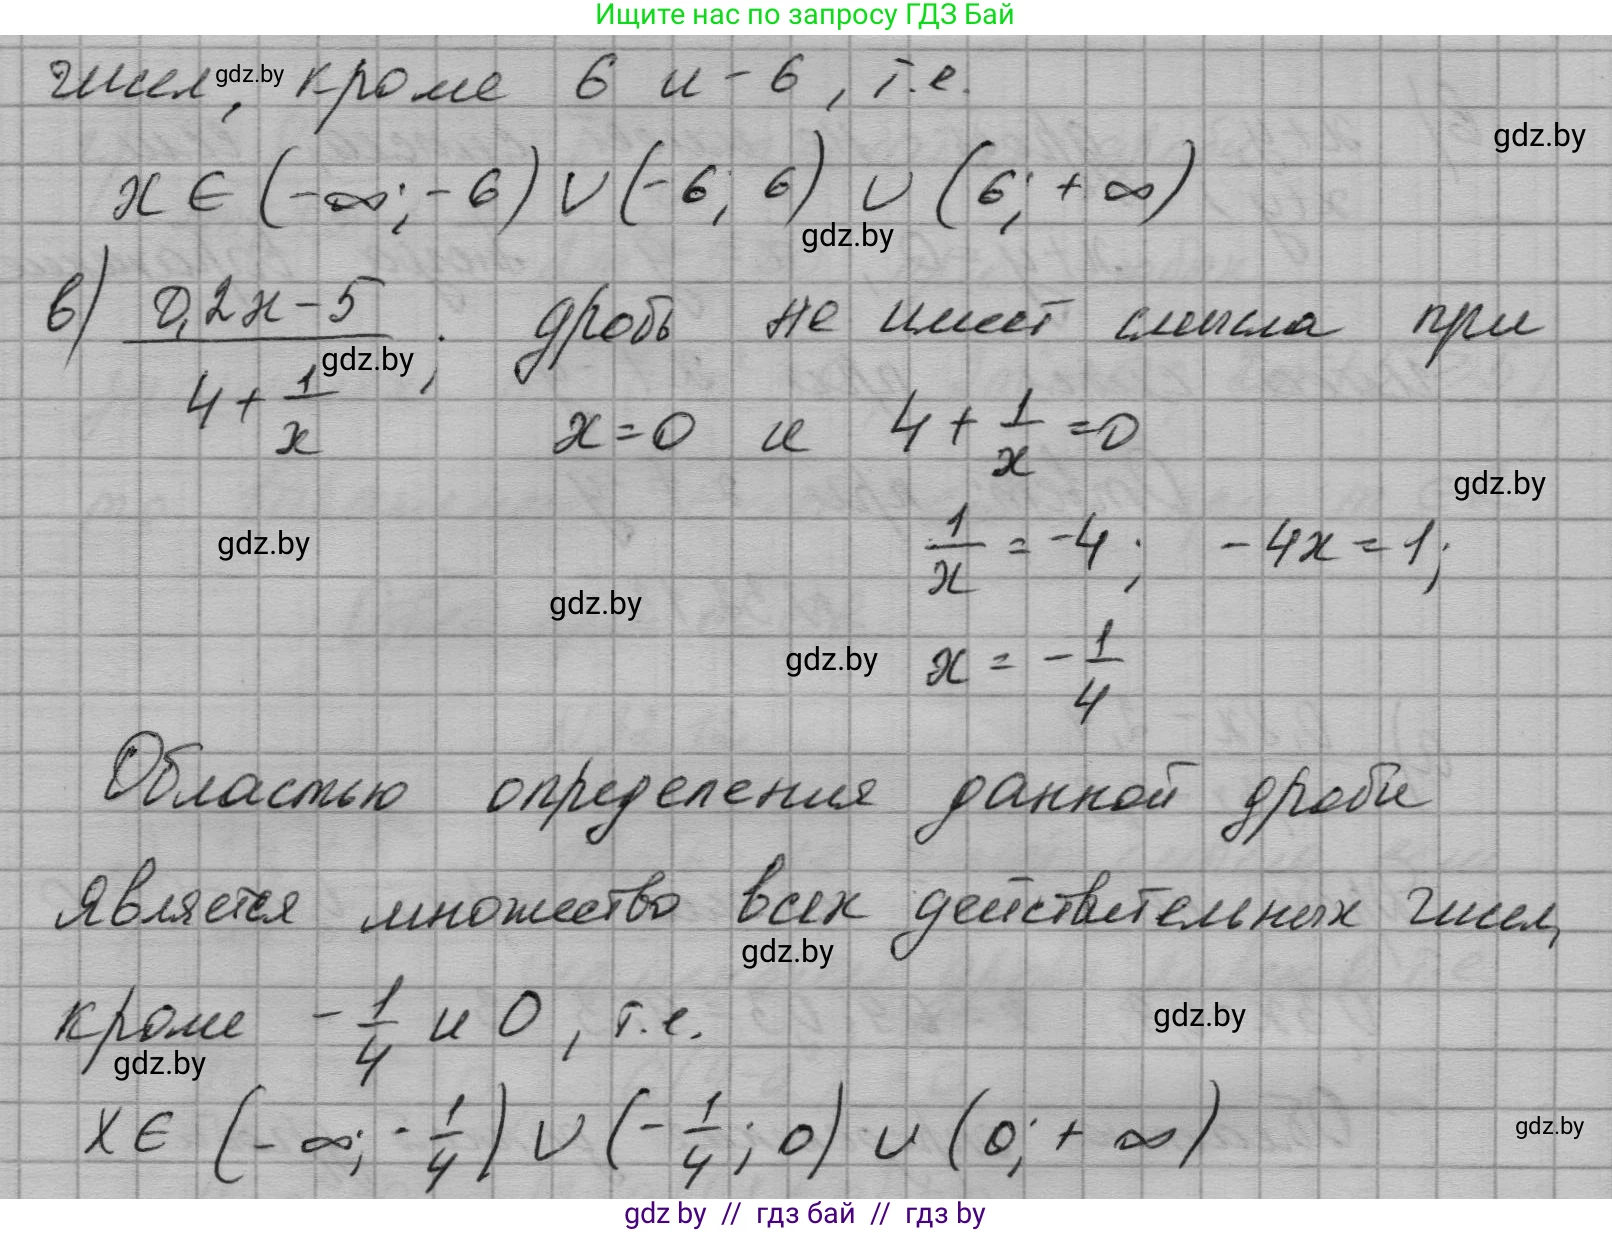 Ищите нас по запросу ГДЗ Бай
чисел, кроме 6 и -6, т.е.
gdz.by
gdz.by
x ∈ (-∞; -6) ∪ (-6; 6) ∪ (6; +∞)
gdz.by
в) (0,2x - 5)/(4 + 1/x); дробь не имеет смысла при
gdz.by
x = 0 и 4 + 1/x = 0
gdz.by
1/x = -4; -4x = 1;
gdz.by
gdz.by
gdz.by
x = -1/4
Областью определения данной дроби
является множество всех действительных чисел,
gdz.by
кроме -1/4 и 0, т.е.
gdz.by
gdz.by
x ∈ (-∞; -1/4) ∪ (-1/4; 0) ∪ (0; +∞)
gdz.by
gdz by // гдз бай // гдз by